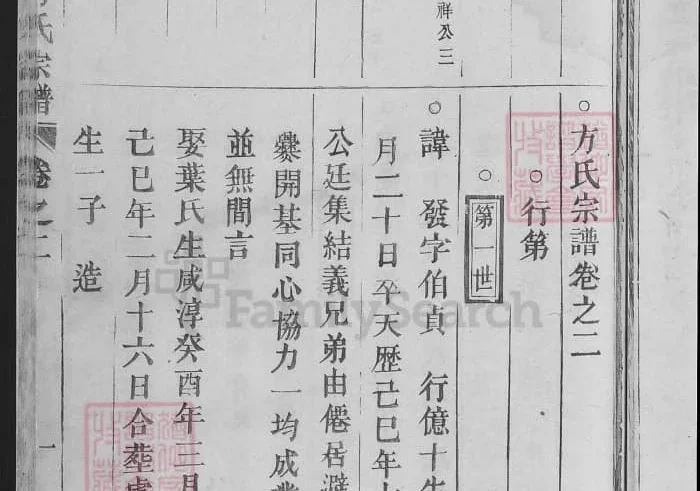 方氏宗譜卷之二
行第
第一世
諱 發字伯貞 行億十生
月二十日卒天歷己巳年
公廷集結義兄弟由僊居
爨開基同心協力一均成
並無間言
娶葉氏生咸淳癸酉年三月
己巳年二月十六日合塟
生一子 造
祥公三
氏宗譜 卷之二
一
FamilySearch